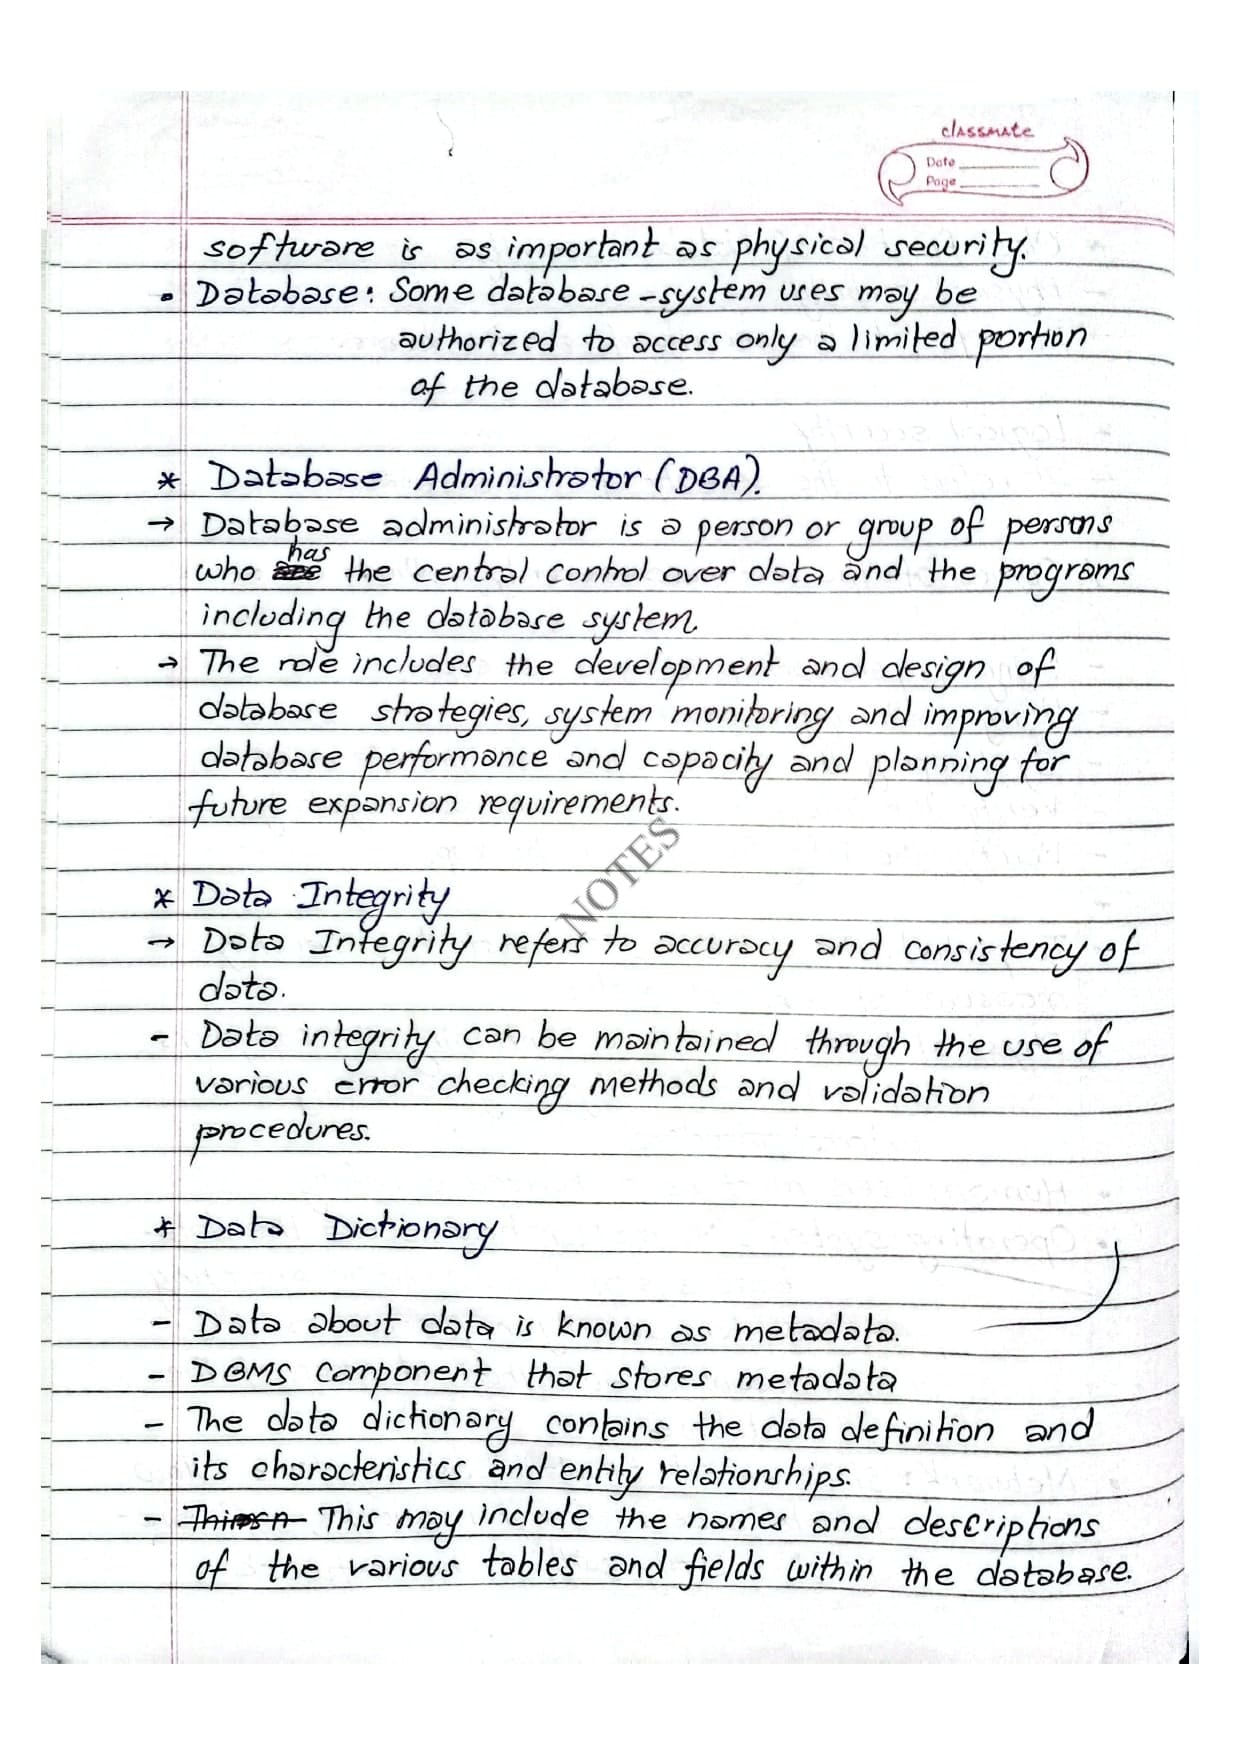 classmate
Date
Page
software is as important as physical security.
• Database: Some database-system uses may be
authorized to access only a limited portion
of the database.
* Database Administrator (DBA).
→ Database administrator is a person or group of persons
has
who are the central control over data and the programs
including the database system.
→ The role includes the development and design of
database strategies, system monitoring and improving
database performance and capacity and planning for
future expansion requirements.
NOTES
* Data Integrity
→ Data Integrity refers to accuracy and consistency of
data.
- Data integrity can be maintained through the use of
various error checking methods and validation
procedures.
* Data Dictionary
- Data about data is known as metadata.
- DBMS component that stores metadata
- The data dictionary contains the data definition and
its characteristics and entity relationships.
- This may include the names and descriptions
of the various tables and fields within the database.